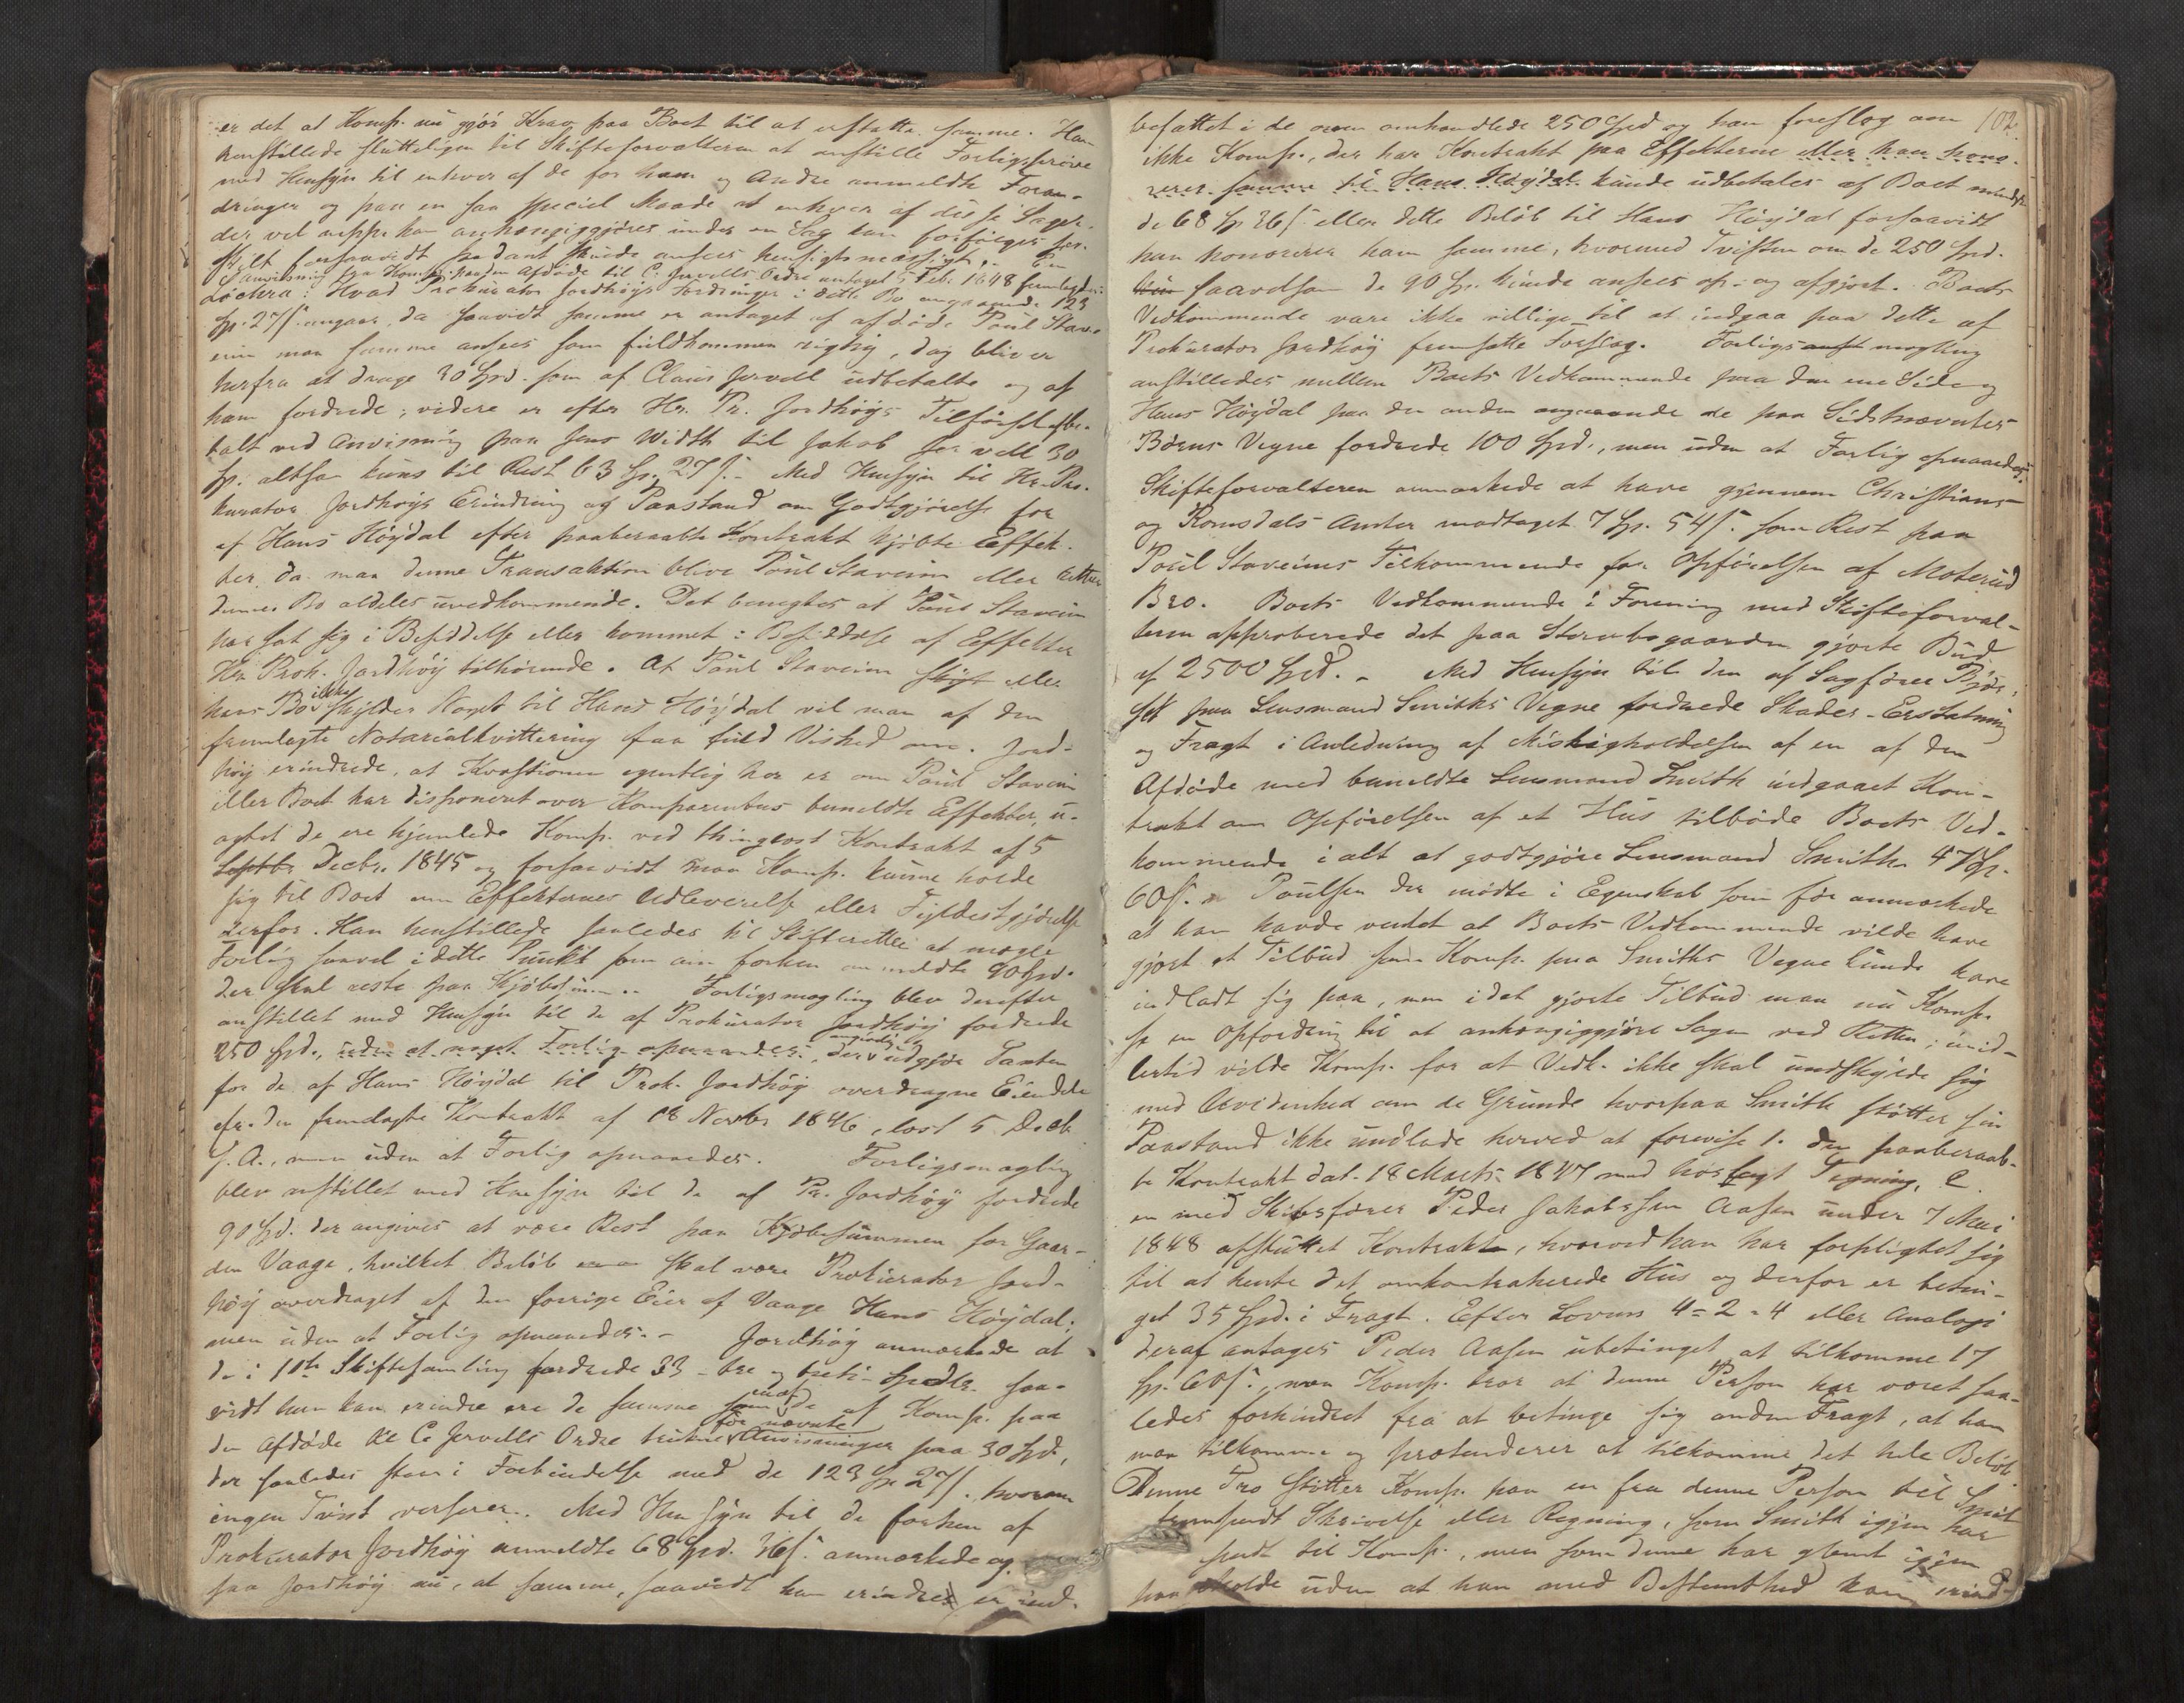 er det at Komp. nu gjør Krav paa Boet til at erstatte samme. Han
henstillede slutteligen til Skifteforvalteren at anstille Forligsprøve
med Hensyn til enhver af de for ham og Andre anmeldte Foran-
dringer og paa en saa speciel Maade at enhver af disse Sager
der vel neppe kan anhængiggjøres under en Sag kan forfølges sær-
skilt forsaavidt saadant skulde ansees hensigtsmæssigt. En
Anvisning fra Komp. paa den Afdøde til C. Jervells Ordre antaget 5 Feb. 1848 fremlagdes
Lochra: Hvad Prokurator Jordhøys Fordringer i dette Bo angaaende 123
Sp. 27 s. angaar, da saavidt samme er antaget af afdøde Poul Stav-
eim maa samme ansees som fuldkommen rigtig, dog bliver
herfra at drage 30 Spd. som af Claus Jervell udbetalte og af
ham fordrede; videre er efter Hr. Pr. Jordhøys Tilførsel afbe-
talt ved Anvisning paa Jens Width til Jakob Jervell 30
Sp. altsaa kuns til Rest 63 Sp. 27 s. - Med Hensyn til Hr. Pro-
kurator Jordhøys Erindring og Paastand om Godtgjørelse for
af Hans Höÿdal efter paaberaabte Kontrakt kjøbte Effek-
ter, da maa denne Transaktion blive Poul Staveim eller rettere
dennes Bo aldeles uvedkommende. Det benegtes at Poul Staveim
har sat sig i Besiddelse eller kommet i Besiddelse af Effekter
Hr. Prok. Jordhøy tilhørende. At Poul Staveim skyl eller
hans Bo ikke skylder Noget til Hans Höÿdal vil man af den
fremlagte Notarialkvittering faa fuld Vished om. Jord-
høy erindrede, at Kvæstionen egentlig her er om Poul Staveim
eller Boet har disponeret over Komparentens bemeldte Effekter, u-
agtet de ere hjemlede Komp. ved thinglæst Kontrakt af 5
Septbr Decbr. 1845 og forsaavidt maa Komp. kunne holde
sig til Boet om Effekternes Udleverelse eller Fyldestgjørelse
derfor. Han henstillede saaledes til Skifteretten at mægle
Forlig saavel i dette Punkt som om forhen anmeldte 90 Spd.
der skal reste paa Kjøbesummen. Forligsmægling blev derefter
anstillet med Hensyn til de af Prokurator Jordhøy fordrede
250 Spd., uden at noget Forlig opnaaedes, der angivelig udgjør Taxten
for de af Hans Höÿdal til Prok. Jordhøy overdragne Eiendele
efter den fremlagte Kontrakt af 18 Novbr 1846, læst 5 Decbr
s. A., men uden at Forlig opnaaedes. Forligsmægling
blev anstillet med Hensyn til de af Pr. Jordhøy fordrede
90 Spd. der angives at være Rest paa Kjøbesummen for Gaar-
den Vaage, hvilket Beløb skal være Prokurator Jord-
høy overdraget af den forrige Eier af Vaage Hans Höÿdal;
men uden at Forlig opnaaedes. - Jordhøy anmærkede at
de i 1ste Skiftesamling fordrede 33 - tre og treti - Spdlr. saa-
vidt han kan erindre ere de samme som de af Komp. paa
den Afdøde til C. Jervells Ordre trukne før nævnte Anvisninger paa 30 Spd,
der saaledes staar i Forbindelse med de 123 Sp. 27 s. hvorom
ingen Tvist verserer. Med Hensyn til de forhen af
Prokurator Jordhøy anmeldte 68 Spd. 26 s. anmærkede og-
saa Jordhøy nu, at samme, saavidt han erindrer er ind-
102.
befattet i de oven omhandlede 250 Spd og han foreslog om
ikke Komp., der har Kontrakt paa Effekterne eller han hono-
rerer samme til Hans Höÿdal kunde udbetales af Boet mindst
de 68 Sp 26 s. eller dette Beløb til Hans Höÿdal forsaavidt
han honorerer ham samme, hvormed Tvisten om de 250 Spd.
saavelsom de 90 Sp. kunde ansees op- og afgjort. Boets
Vedkommende vare ikke villige til at indgaa paa dette af
Prokurator Jordhøy fremsatte Forslag. Forligs mægling
anstilledes mellem Boets Vedkommende paa den ene Side og
Hans Höÿdal paa den anden angaaende de paa Sidstnævntes
Børns Vegne fordrede 100 Spd., men uden at Forlig opnaaedes.
Skifteforvalteren anmærkede at have gjennem Christians-
og Romsdals Amter modtaget 7 Sp. 54 s. som Rest paa
Poul Staveims Tilkommende for Opførelsen af Moterud
Bro. Boets Vedkommende i Forening med Skifteforval-
teren approberede det paa Storebogaarden gjorte Bud
af 2500 Spd. - Med Hensyn til den af Sagfører Bjør-
set paa Lensmand Smiths Vegne fordrede Skades-Erstatning
og Fragt i Anledning af Misligholdelsen af en af den
Afdøde med bemeldte Lensmand Smith indgaaet Kon-
trakt om Opførelsen af et Hus tilbøde Boets Ved-
kommende i alt at godtgjøre Lensmand Smith 47 Sp.
60 s. Poulsen der mødte i Egenskab som før anmærkede
at han havde ventet at Boets Vedkommende vilde have
gjort et Tilbud som Komp. paa Smiths Vegne kunde have
indladt sig paa, men i det gjorte Tilbud maa nu Komp.
se en Opfordring til at anhængiggjøre Sagen ved Retten; imid-
lertid vilde Komp. for at Vedk. ikke skal undskylde sig
med Uvidenhed om de Grunde hvorpaa Smith støtter sin
Paastand ikke undlade herved at forevise 1. den paaberaab-
te Kontrakt dat. 18 Marts 1847 med hosføyet Tegning, 2
en med Skibsfører Peder Jakobssen Aasen under 7 Mai
1848 afsluttet Kontrakt, hvorved han har forpligtet sig
til at hente det omkontraherede Hus og derfor er betin-
get 35 Spd. i Fragt. Efter Lovens 4-2-4 eller Analogi
deraf antages Peder Aasen ubetinget at tilkomme 17
Sp. 60 s., men Komp. tror at denne Person har været saa-
ledes forhindret fra at betinge sig anden Fragt, at han
maa tilkomme og prætenderer at tilkomme det hele Beløb.
Denne Tro støtter Komp. paa en fra denne Person til Smith
fremsendt Skrivelse eller Regning, som Smith igjen har
sendt til Komp., men som denne har glemt igjen
paa uden at han med Bestemthed kan erind-